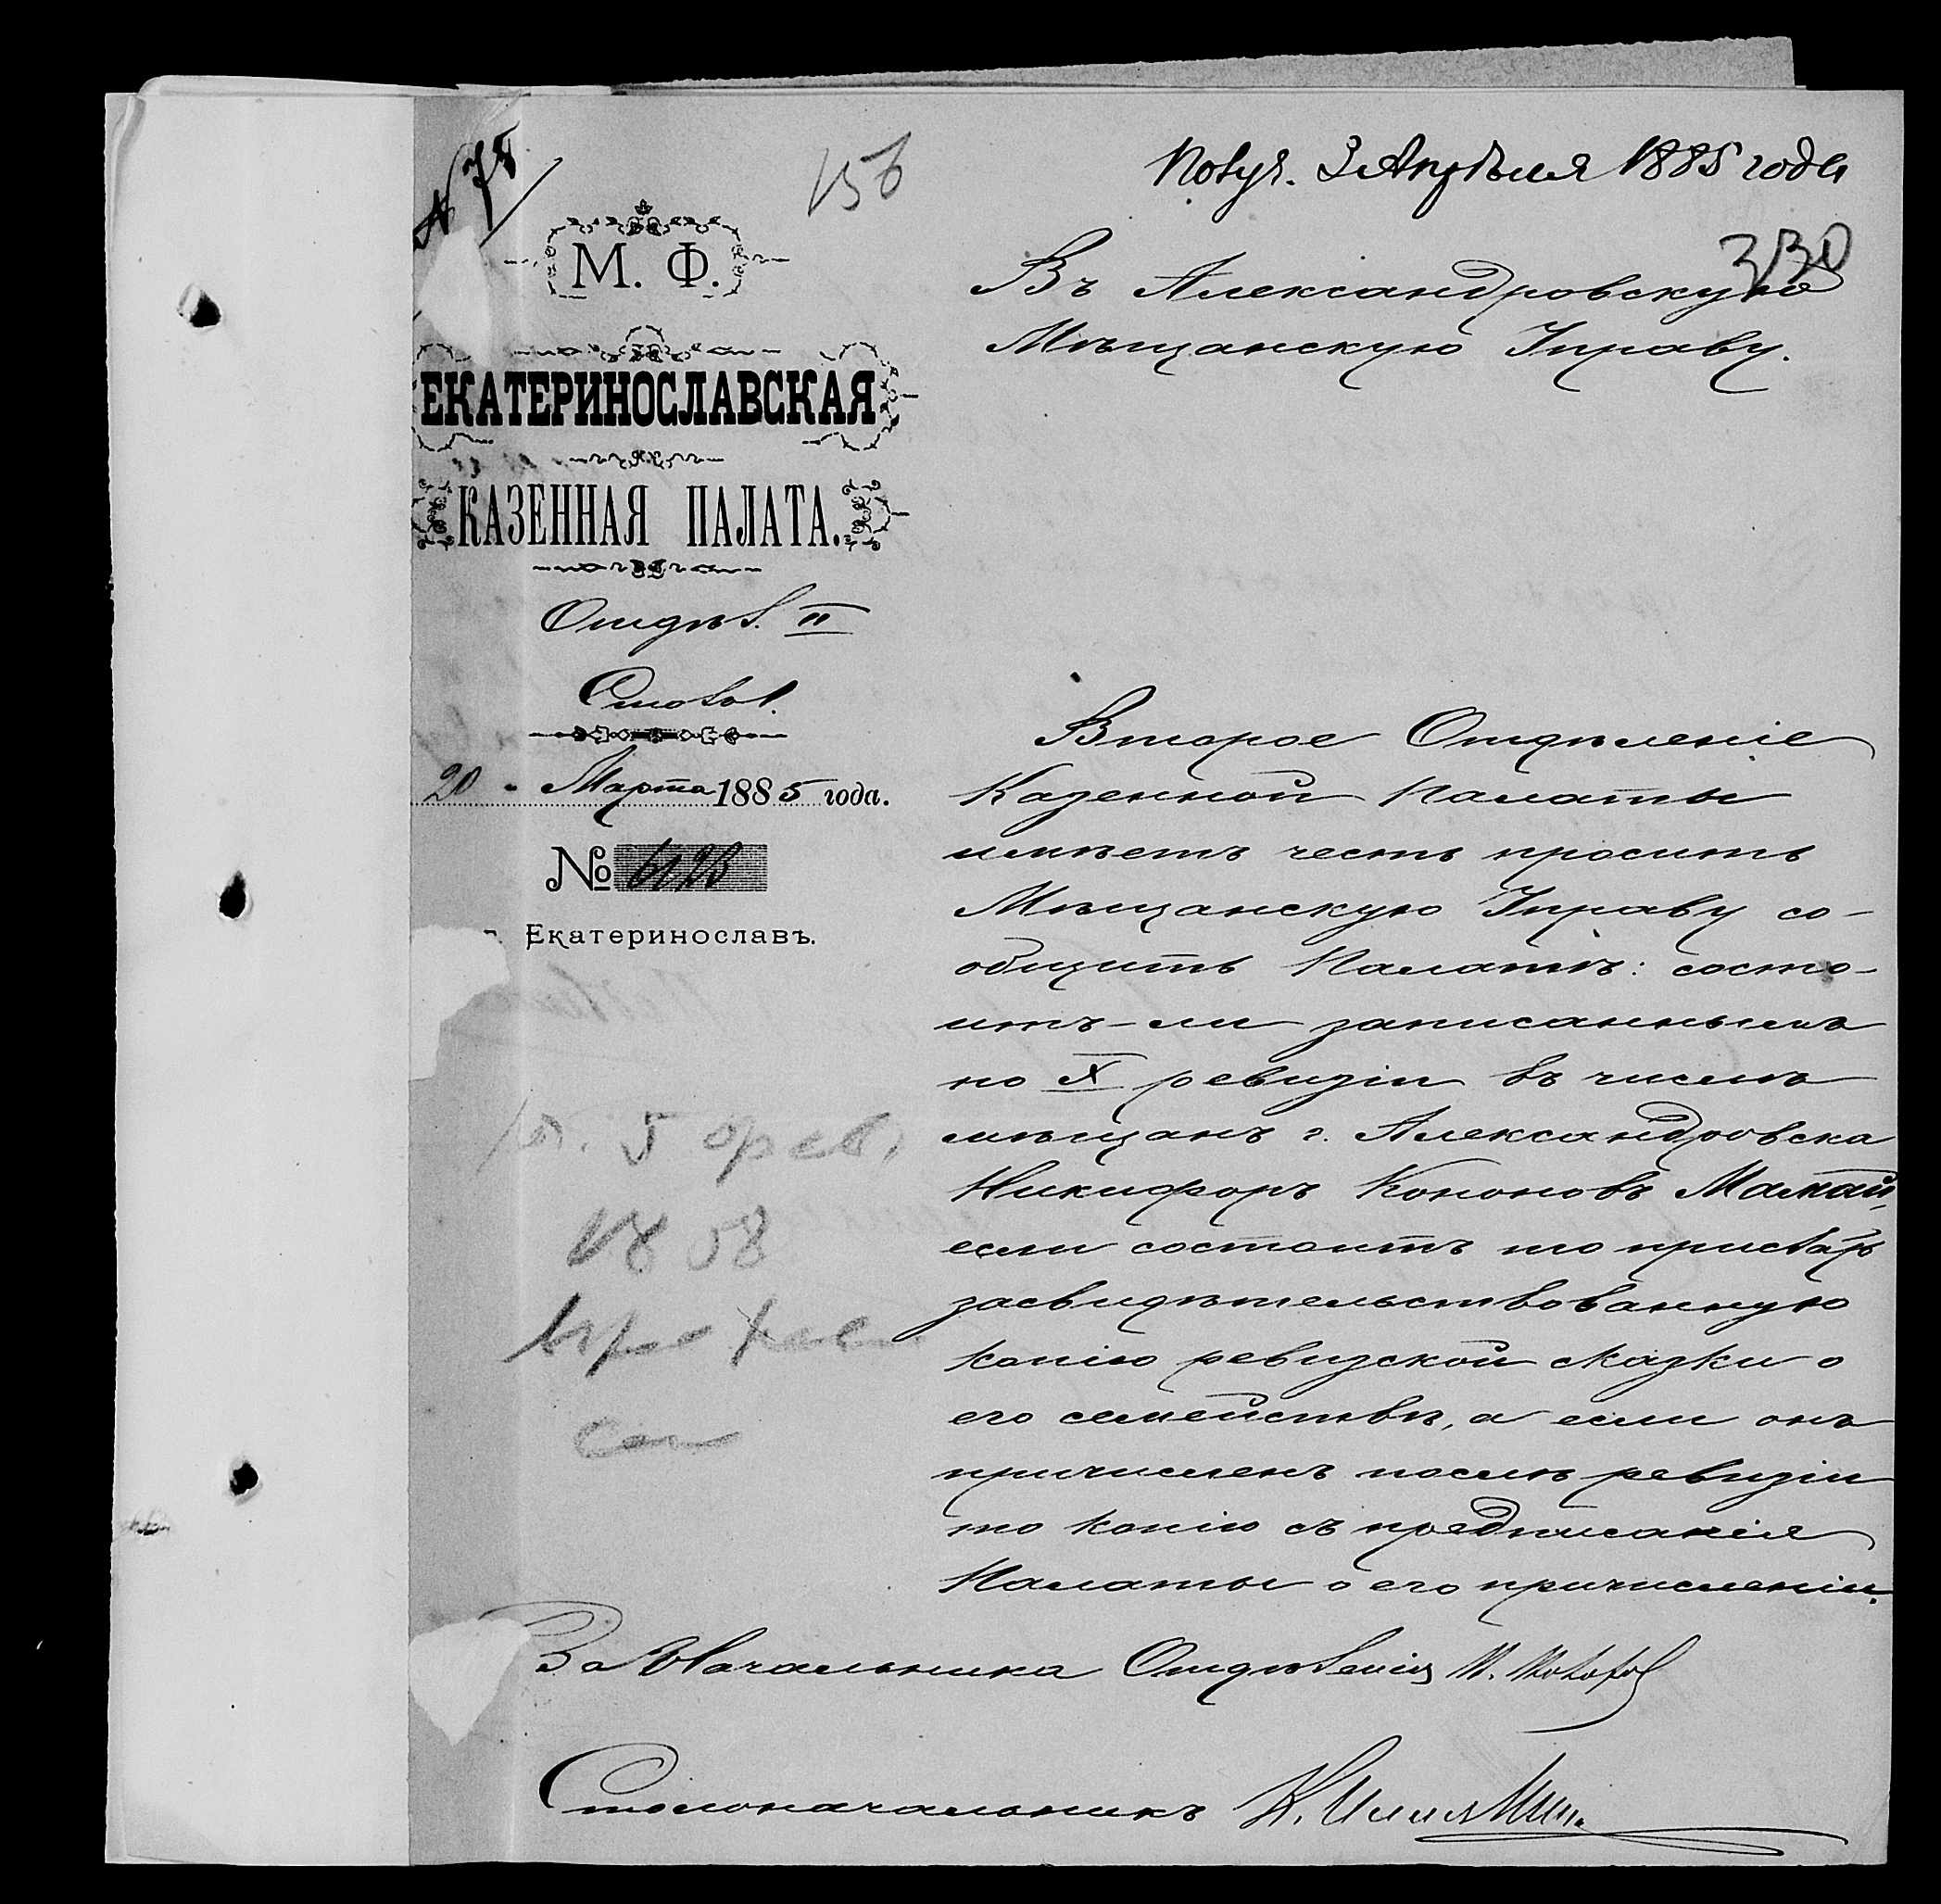 № 78
156
Получ. 3 Апрѣля 1885 года
330
М. Ф.
ЕКАТЕРИНОСЛАВСКАЯ
КАЗЕННАЯ ПАЛАТА.
Отдѣл. II
Столъ 1.
20 " Марта 1885 года.
№ 6128
г. Екатеринославъ.
Въ Александровскую
Мѣщанскую Управу.
Второе Отдѣленіе
Казенной Палаты
имѣетъ честь просить
Мѣщанскую Управу со-
общить Палатѣ: состо-
итъ-ли записаннымъ
по X ревизіи въ числѣ
мѣщанъ г. Александровска
Никифоръ Кононовъ Мамай,
если состоитъ то прислать
засвидѣтельствованную
копію ревизской сказки о
его семействѣ, а если онъ
причисленъ послѣ ревизіи
то копію съ предписанія
Палаты о его причисленіи.
5 фев.
1858
За Начальника Отдѣленія
Столоначальникъ